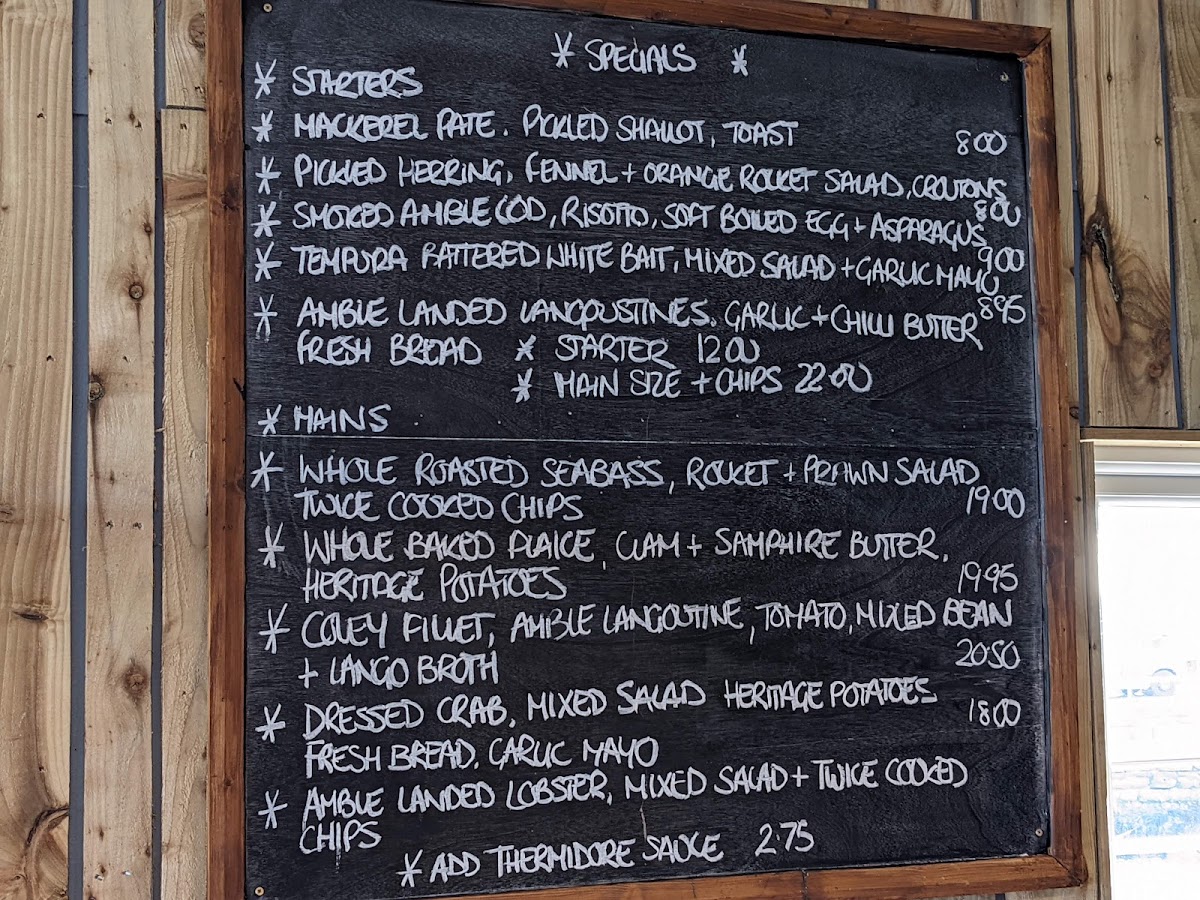 * SPECIALS *
* STARTERS
* MACKEREL PATE. PICKLED SHALLOT, TOAST 8.00
* PICKLED HERRING, FENNEL + ORANGE ROCKET SALAD, CROUTONS 8.00
* SMOKED AMBLE COD, RISOTTO, SOFT BOILED EGG + ASPARAGUS 9.00
* TEMPURA BATTERED WHITE BAIT, MIXED SALAD + GARLIC MAYO 8.95
* AMBLE LANDED LANGOUSTINES. GARLIC + CHILLI BUTTER
FRESH BREAD * STARTER 12.00
* MAIN SIZE + CHIPS 22.00
* MAINS
* WHOLE ROASTED SEABASS, ROCKET + PRAWN SALAD
TWICE COOKED CHIPS 19.00
* WHOLE BAKED PLAICE, CLAM + SAMPHIRE BUTTER,
HERITAGE POTATOES 19.95
* COLEY FILLET, AMBLE LANGOUTINE, TOMATO, MIXED BEAN
+ LANGO BROTH 20.50
* DRESSED CRAB, MIXED SALAD HERITAGE POTATOES 18.00
FRESH BREAD. GARLIC MAYO
* AMBLE LANDED LOBSTER, MIXED SALAD + TWICE COOKED
CHIPS
* ADD THERMIDORE SAUCE 2.75